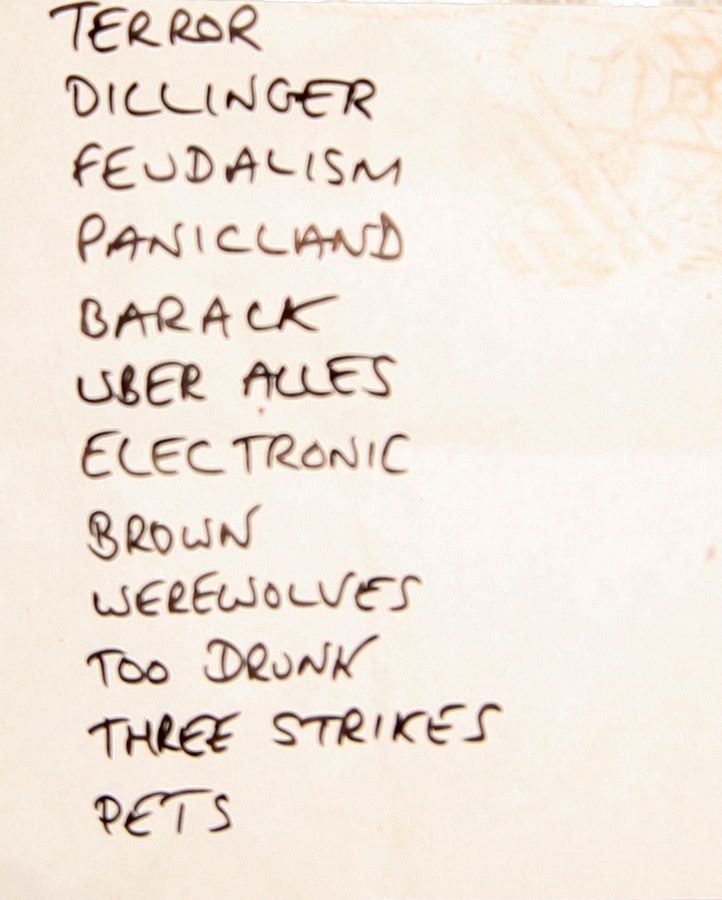 TERROR
DILLINGER
FEUDALISM
PANICLAND
BARACK
UBER ALLES
ELECTRONIC
BROWN
WEREWOLVES
TOO DRUNK
THREE STRIKES
PETS